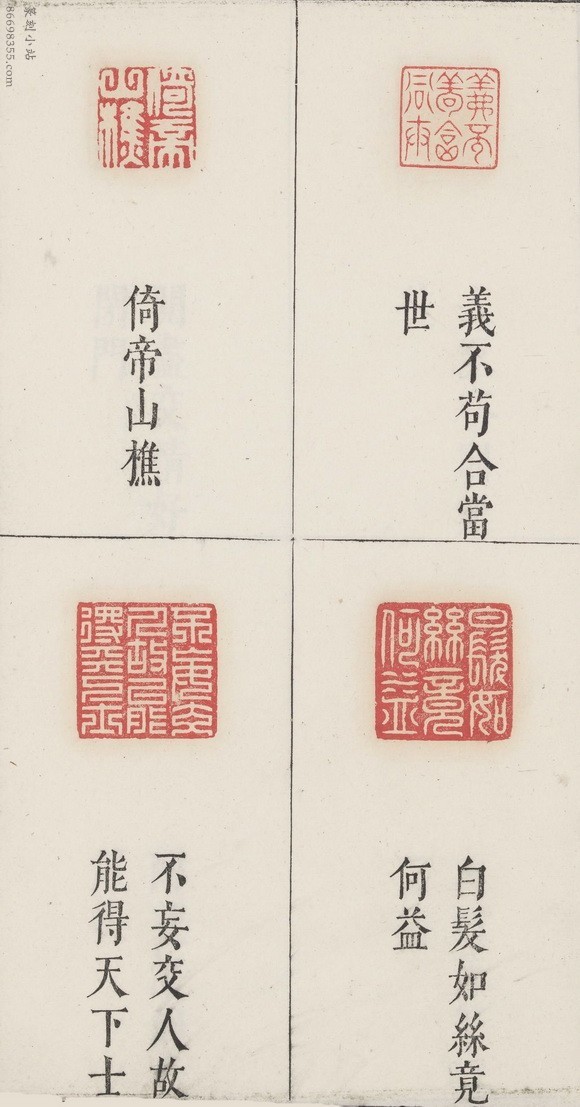 義不苟合當
世
倚帝山樵
白髮如絲竟
何益
不妄交人故
能得天下士
篆刻小站
86698355.com